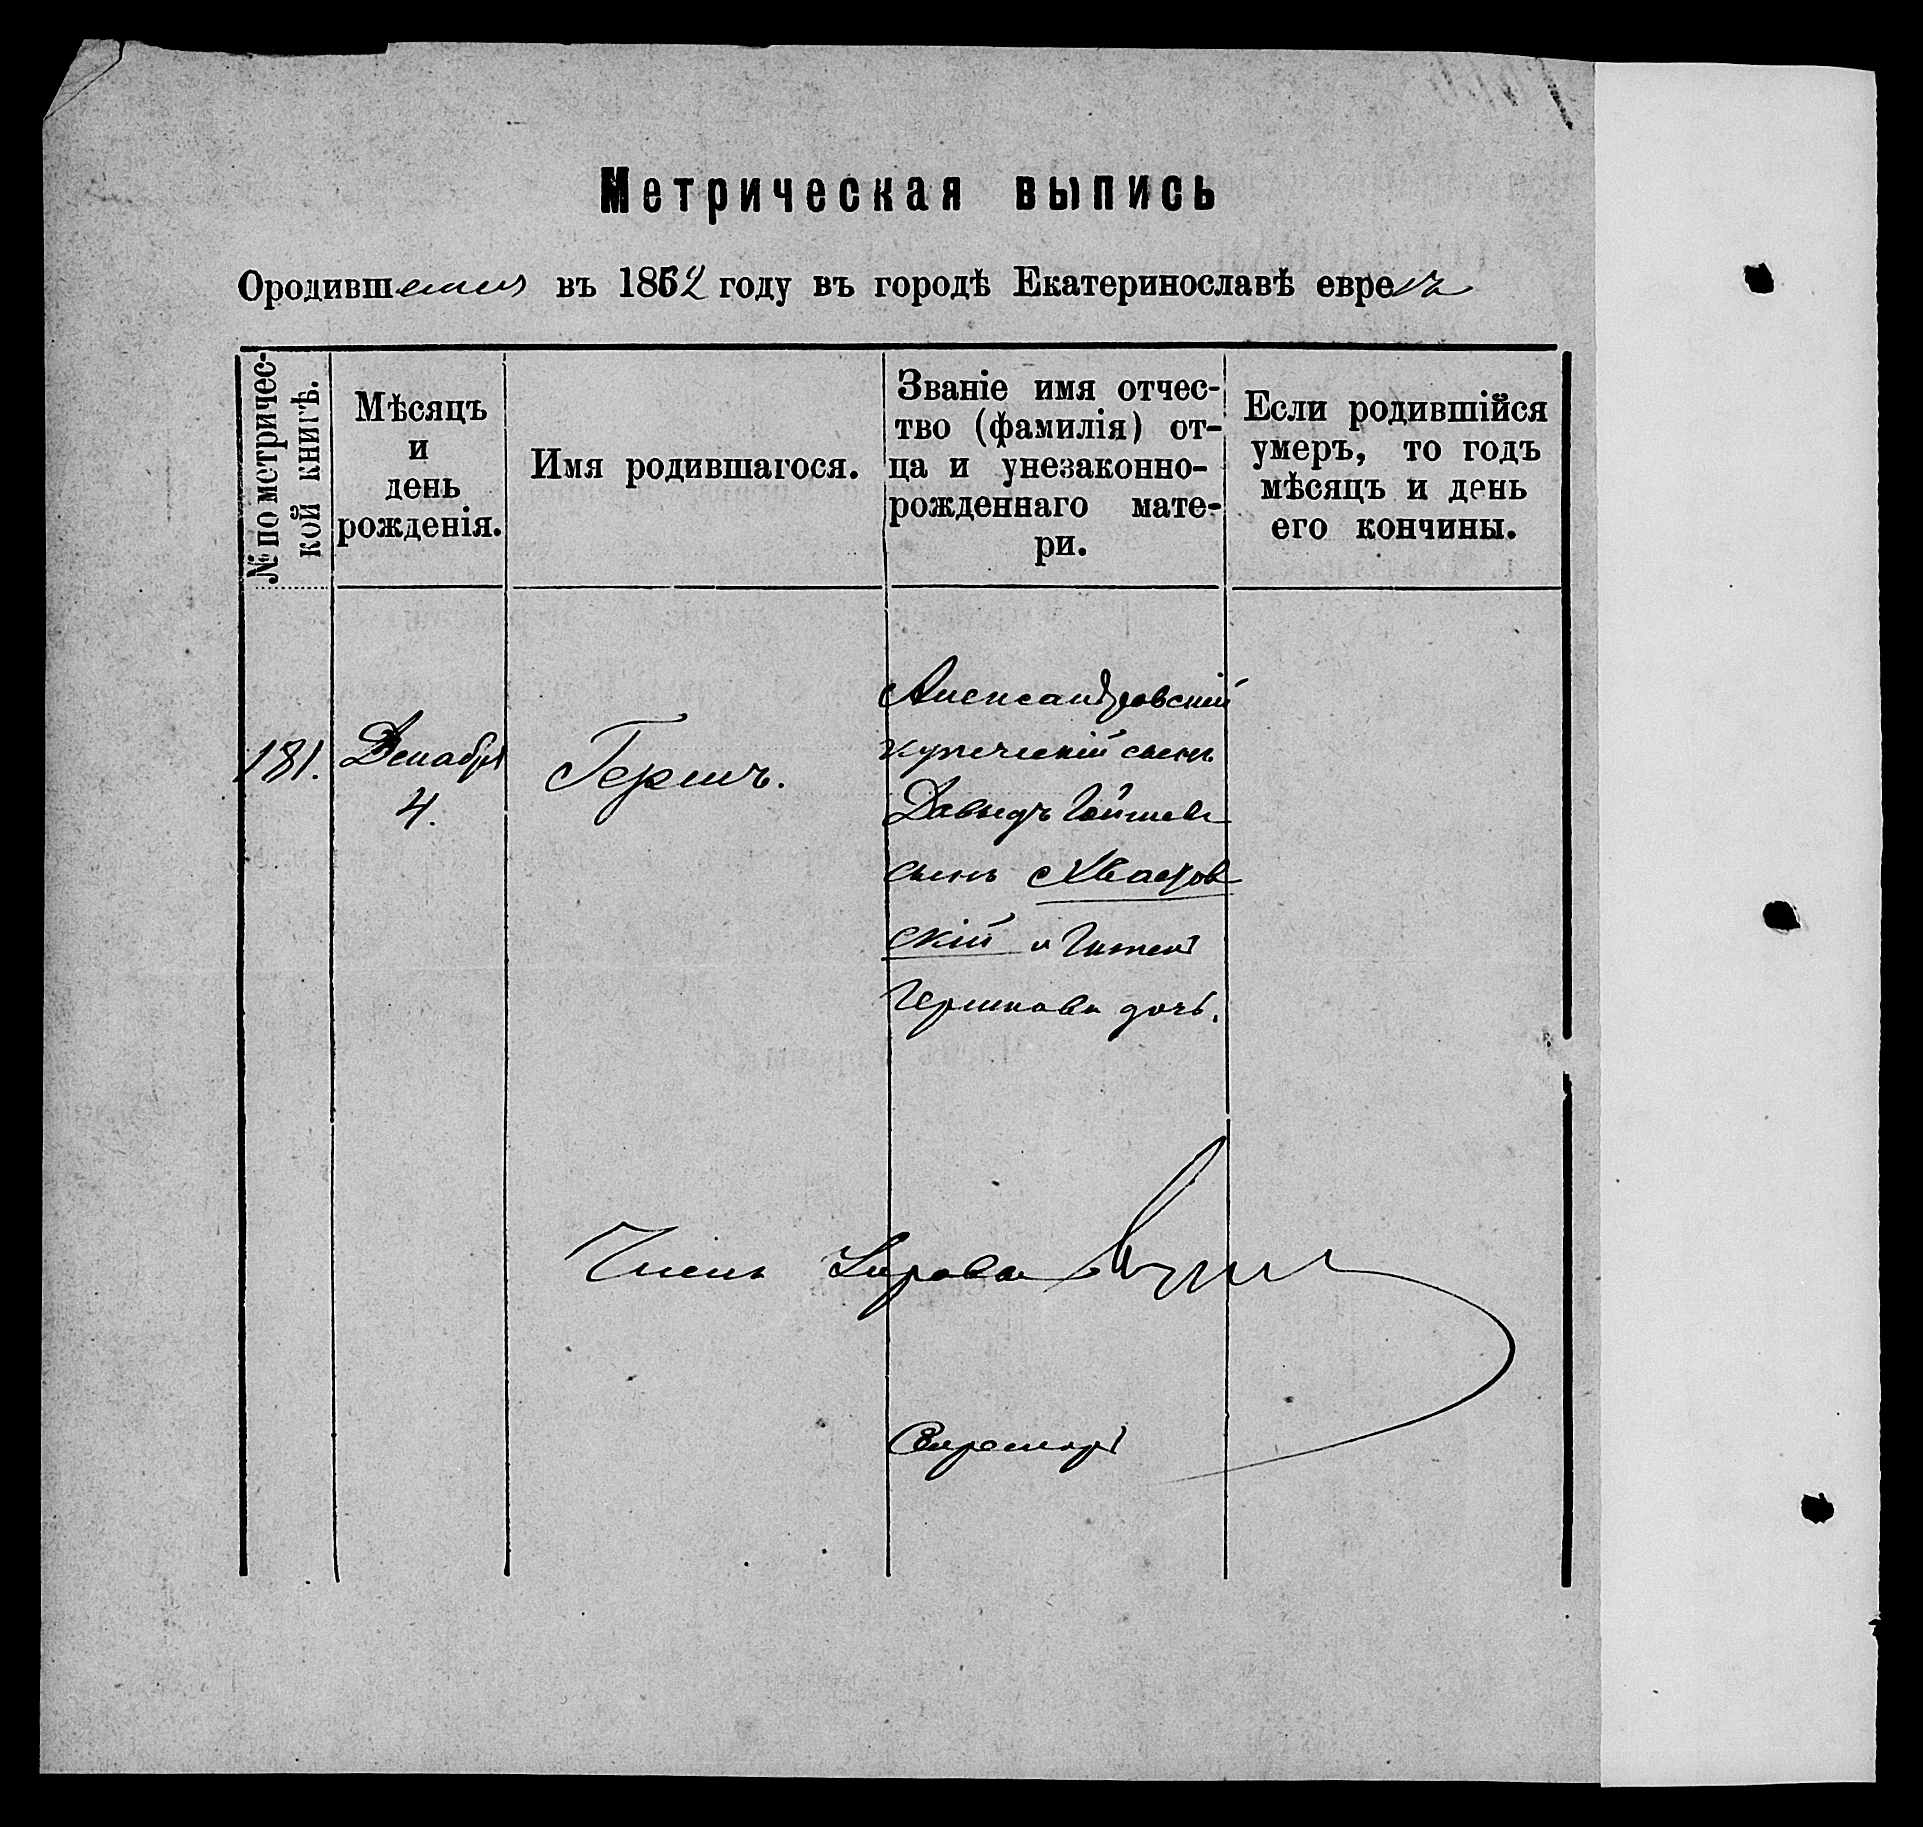 Метрическая выпись
Ородившемся въ 1862 году въ городѣ Екатеринославѣ евреѣ
№ по метричес-
кой книгѣ.
Мѣсяцъ
и
день
рожденія.
Имя родившагося.
Званіе имя отчес-
тво (фамилія) от-
ца и унезаконно-
рожденнаго мате-
ри.
Если родившійся
умеръ, то годъ
мѣсяцъ и день
его кончины.
181.
Декабря
4.
Гершъ.
Александровскій
купеческій сынъ
Давыдъ
сынъ Хвастов
скій и
дочь.
Членъ Управы
Секретарь